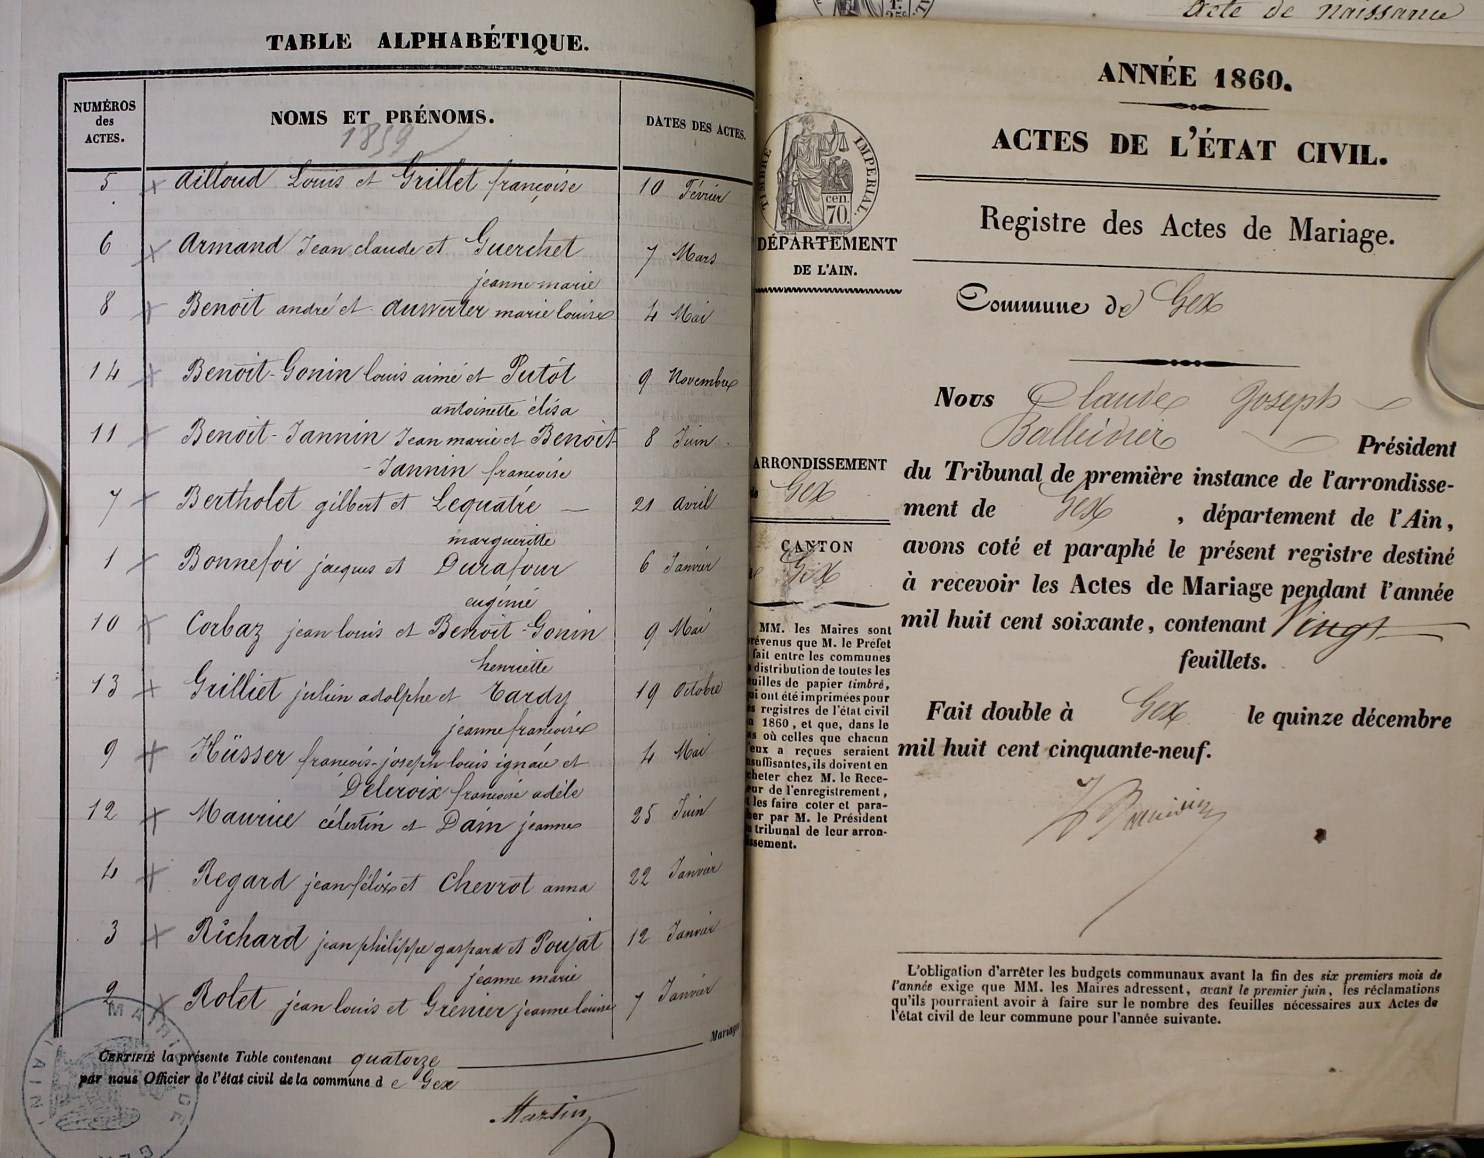 TABLE ALPHABÉTIQUE.
NUMÉROS des ACTES. NOMS ET PRÉNOMS. DATES DES ACTES.
1859
5 Ailloud Louis et Grillet françoise 10 Février
6 Armand Jean claude et Guerchet 7 Mars
jeanne marie
8 Benoit andré et Auwerter marie louise 4 Mai
14 Benoit-Gonin louis aimé et Putôt 9 Novembre
antoinette élisa
11 Benoit-Jannin Jean marie et Benoit 8 Juin
-Jannin françoise
7 Bertholet gilbert et Lequatre 21 avril
margueritte
1 Bonnefoi jacques et Durafour 6 Janvier
eugénie
10 Corbaz jean louis et Benoit-Gonin 9 Mai
henriette
13 Grilliet julien adolphe et Tardy 19 Octobre
jeanne françoise
9 Hüsser françois-joseph louis ignace et 4 Mai
Delcroix françoise adèle
12 Maurice célestin et Dam jeanne 25 Juin
4 Regard jean félix et Chevrot anna 22 Janvier
3 Richard jean philippe gaspard et Poujat 12 Janvier
jeanne marie
2 Rolet jean louis et Grenier jeanne louise 7 Janvier
Mariages
CERTIFIÉ la présente Table contenant quatorze
par nous Officier de l'état civil de la commune d e Gex
Martin
MAIRIE DE GEX
(AIN)
Acte de naissance
ANNÉE 1860.
ACTES DE L'ÉTAT CIVIL.
Registre des Actes de Mariage.
TIMBRE IMPÉRIAL.
cen.
70.
DÉPARTEMENT
DE L'AIN.
Commune de Gex
ARRONDISSEMENT
de Gex
CANTON
Gex
MM. les Maires sont
prévenus que M. le Préfet
fait entre les communes
distribution de toutes les
feuilles de papier timbré,
qui ont été imprimées pour
les registres de l'état civil
1860, et que, dans le
cas où celles que chacun
d'eux a reçues seraient
insuffisantes, ils doivent en
acheter chez M. le Rece-
veur de l'enregistrement,
les faire coter et para-
pher par M. le Président
tribunal de leur arron-
dissement.
Nous Claude Joseph
Balleidier Président
du Tribunal de première instance de l'arrondisse-
ment de Gex, département de l'Ain,
avons coté et paraphé le présent registre destiné
à recevoir les Actes de Mariage pendant l'année
mil huit cent soixante, contenant Vingt
feuillets.
Fait double à Gex le quinze décembre
mil huit cent cinquante-neuf.
L'obligation d'arrêter les budgets communaux avant la fin des six premiers mois de
l'année exige que MM. les Maires adressent, avant le premier juin, les réclamations
qu'ils pourraient avoir à faire sur le nombre des feuilles nécessaires aux Actes de
l'état civil de leur commune pour l'année suivante.